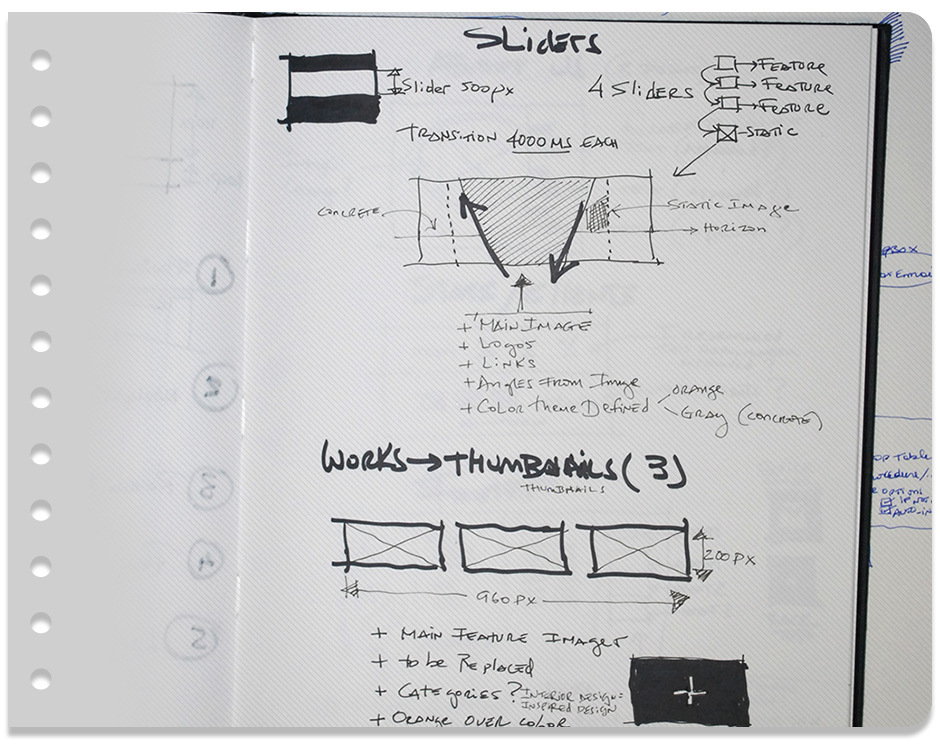 SLiDERS
Slider 500px
4 SliDERS
FEATURE
FEATURE
FEATURE
STATIC
TRANSITION 4000 MS EACH
CONCRETE
STATIC IMAGE
HORIZON
+ MAIN IMAGE
+ Logos
+ LINKS
+ ANGLES FROM IMAGE
+ COLOR THEME DEFINED
ORANGE
GRAY (CONCRETE)
WORKS → THUMBNAILS (3)
THUMBNAILS
200 PX
960 PX
+ MAIN FEATURE IMAGES
+ to be REPLACED
+ CATEGORIES? INTERIOR DESIGN =
INSPIRED DESIGN
+ ORANGE OVER COLOR
+
1
2
3
4
5
Table